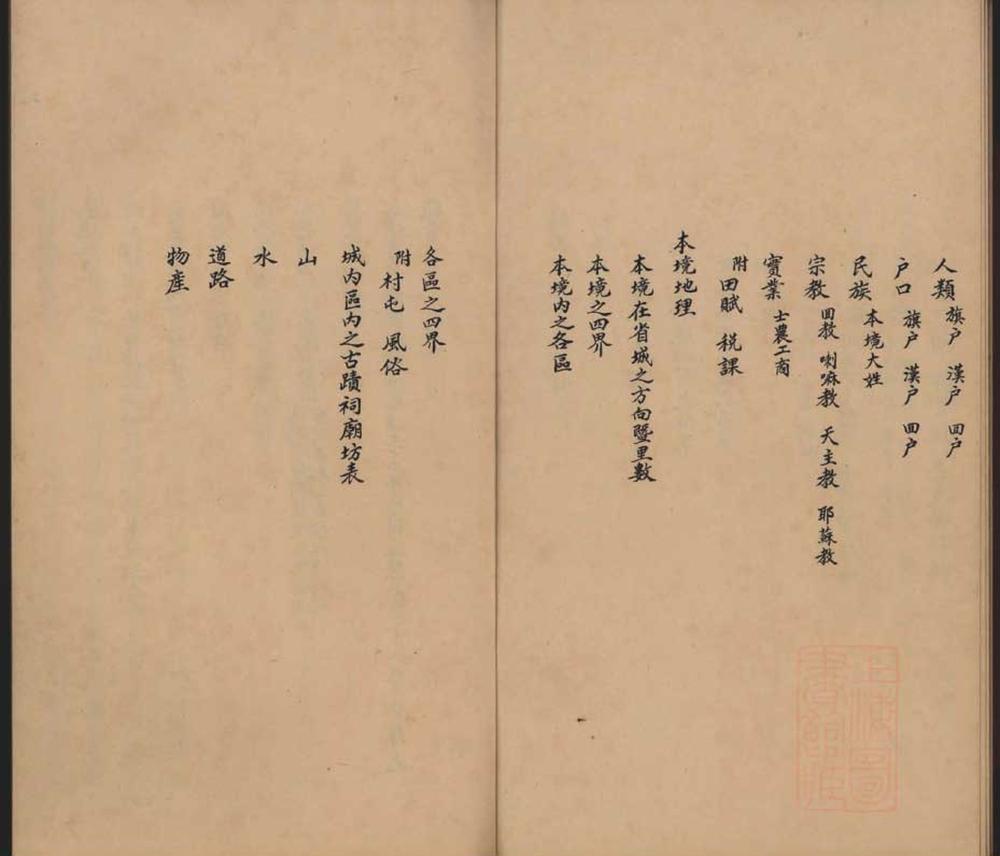 人類 旗戶 漢戶 囬戶
户口 旗戶 漢戶 囬戶
民族 本境大姓
宗教 囬教 喇嘛教 天主教 耶蘇教
實業 士農工商
附田賦 稅課
本境地理
本境在省城之方向曁里數
本境之四界
本境內之各區
各區之四界
附村屯 風俗
城內區內之古蹟祠廟坊表
山
水
道路
物產
上海圖
書館藏